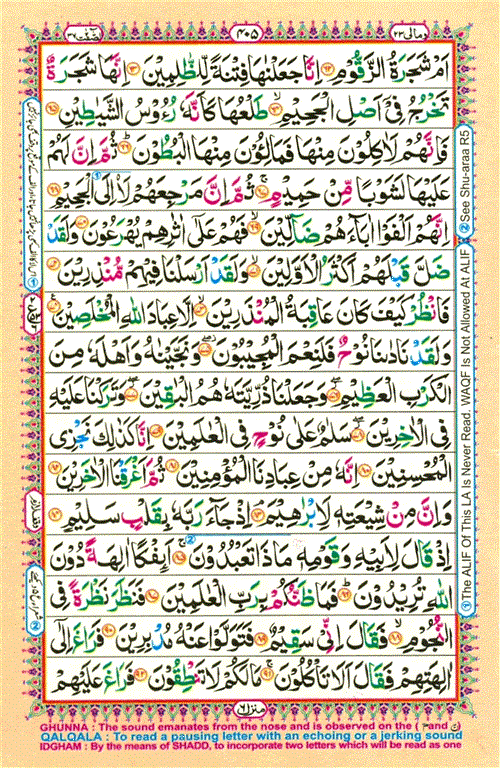 وَمَالِيَ ٢٣
٤٠٥
صٓفّٰت ٣٧
اَمْ شَجَرَةُ الزَّقُّوْمِ ﴿٦٢﴾ اِنَّا جَعَلْنٰهَا فِتْنَةً لِّلظّٰلِمِيْنَ ﴿٦٣﴾ اِنَّهَا شَجَرَةٌ
تَخْرُجُ فِيْۤ اَصْلِ الْجَحِيْمِ ﴿٦٤﴾ طَلْعُهَا كَاَنَّهٗ رُءُوْسُ الشَّيٰطِيْنِ ﴿٦٥﴾
فَاِنَّهُمْ لَاٰكِلُوْنَ مِنْهَا فَمَالِـُٔوْنَ مِنْهَا الْبُطُوْنَ ﴿٦٦﴾ ثُمَّ اِنَّ لَهُمْ
عَلَيْهَا لَشَوْبًا مِّنْ حَمِيْمٍ ﴿٦٧﴾ ثُمَّ اِنَّ مَرْجِعَهُمْ لَا۟اِلَى الْجَحِيْمِ ﴿٦٨﴾
اِنَّهُمْ اَلْفَوْا اٰبَآءَهُمْ ضَآلِّيْنَ ﴿٦٩﴾ فَهُمْ عَلٰۤى اٰثٰرِهِمْ يُهْرَعُوْنَ ﴿٧٠﴾ وَلَقَدْ
ضَلَّ قَبْلَهُمْ اَكْثَرُ الْاَوَّلِيْنَ ﴿٧١﴾ وَلَقَدْ اَرْسَلْنَا فِيْهِمْ مُّنْذِرِيْنَ ﴿٧٢﴾
فَانْظُرْ كَيْفَ كَانَ عَاقِبَةُ الْمُنْذَرِيْنَ ﴿٧٣﴾ اِلَّا عِبَادَ اللّٰهِ الْمُخْلَصِيْنَ ﴿٧٤﴾
وَلَقَدْ نَادٰىنَا نُوْحٌ فَلَنِعْمَ الْمُجِيْبُوْنَ ﴿٧٥﴾ وَنَجَّيْنٰهُ وَاَهْلَهٗ مِنَ
الْكَرْبِ الْعَظِيْمِ ﴿٧٦﴾ وَجَعَلْنَا ذُرِّيَّتَهٗ هُمُ الْبٰقِيْنَ ﴿٧٧﴾ وَتَرَكْنَا عَلَيْهِ
فِي الْاٰخِرِيْنَ ﴿٧٨﴾ سَلٰمٌ عَلٰى نُوْحٍ فِي الْعٰلَمِيْنَ ﴿٧٩﴾ اِنَّا كَذٰلِكَ نَجْزِي
الْمُحْسِنِيْنَ ﴿٨٠﴾ اِنَّهٗ مِنْ عِبَادِنَا الْمُؤْمِنِيْنَ ﴿٨١﴾ ثُمَّ اَغْرَقْنَا الْاٰخَرِيْنَ ﴿٨٢﴾
وَاِنَّ مِنْ شِيْعَتِهٖ لَاِبْرٰهِيْمَ ﴿٨٣﴾ اِذْ جَآءَ رَبَّهٗ بِقَلْبٍ سَلِيْمٍ ﴿٨٤﴾
اِذْ قَالَ لِاَبِيْهِ وَقَوْمِهٖ مَاذَا تَعْبُدُوْنَ ﴿٨٥﴾ اَئِفْكًا اٰلِهَةً دُوْنَ
اللّٰهِ تُرِيْدُوْنَ ﴿٨٦﴾ فَمَا ظَنُّكُمْ بِرَبِّ الْعٰلَمِيْنَ ﴿٨٧﴾ فَنَظَرَ نَظْرَةً فِي
النُّجُوْمِ ﴿٨٨﴾ فَقَالَ اِنِّيْ سَقِيْمٌ ﴿٨٩﴾ فَتَوَلَّوْا عَنْهُ مُدْبِرِيْنَ ﴿٩٠﴾ فَرَاغَ اِلٰۤى
اٰلِهَتِهِمْ فَقَالَ اَلَا تَاْكُلُوْنَ ﴿٩١﴾ مَا لَكُمْ لَا تَنْطِقُوْنَ ﴿٩٢﴾ فَرَاغَ عَلَيْهِمْ
① The ALIF Of This LA Is Never Read. WAQF Is Not Allowed At ALIF ② See Shu-araa R5
GHUNNA : The sound emanates from the nose and is observed on the ( م and ن )
QALQALA : To read a pausing letter with an echoing or a jerking sound
IDGHAM : By the means of SHADD, to incorporate two letters which will be read as one